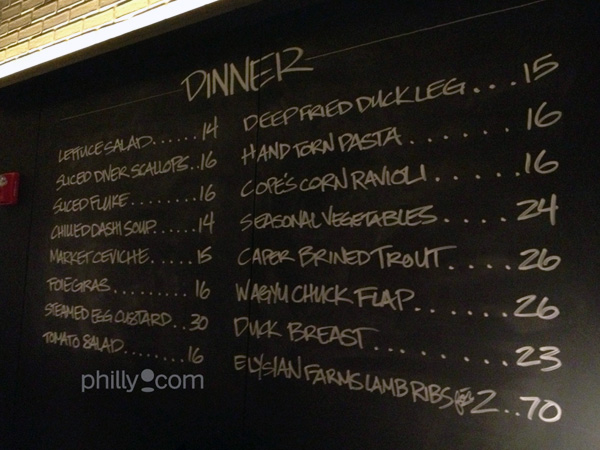 DINNER
LETTUCE SALAD......14
SLICED DIVER SCALLOPS..16
SLICED FLUKE.......16
CHILLED DASHI SOUP.....14
MARKET CEVICHE......15
FOIE GRAS.........16
STEAMED EGG CUSTARD..30
TOMATO SALAD........16
DEEP FRIED DUCK LEG...15
HAND TORN PASTA.......16
COPE'S CORN RAVIOLI.....16
SEASONAL VEGETABLES....24
CAPER BRINED TROUT....26
WAGYU CHUCK FLAP.....26
DUCK BREAST........23
ELYSIAN FARMS LAMB RIBS 2..70
philly.com